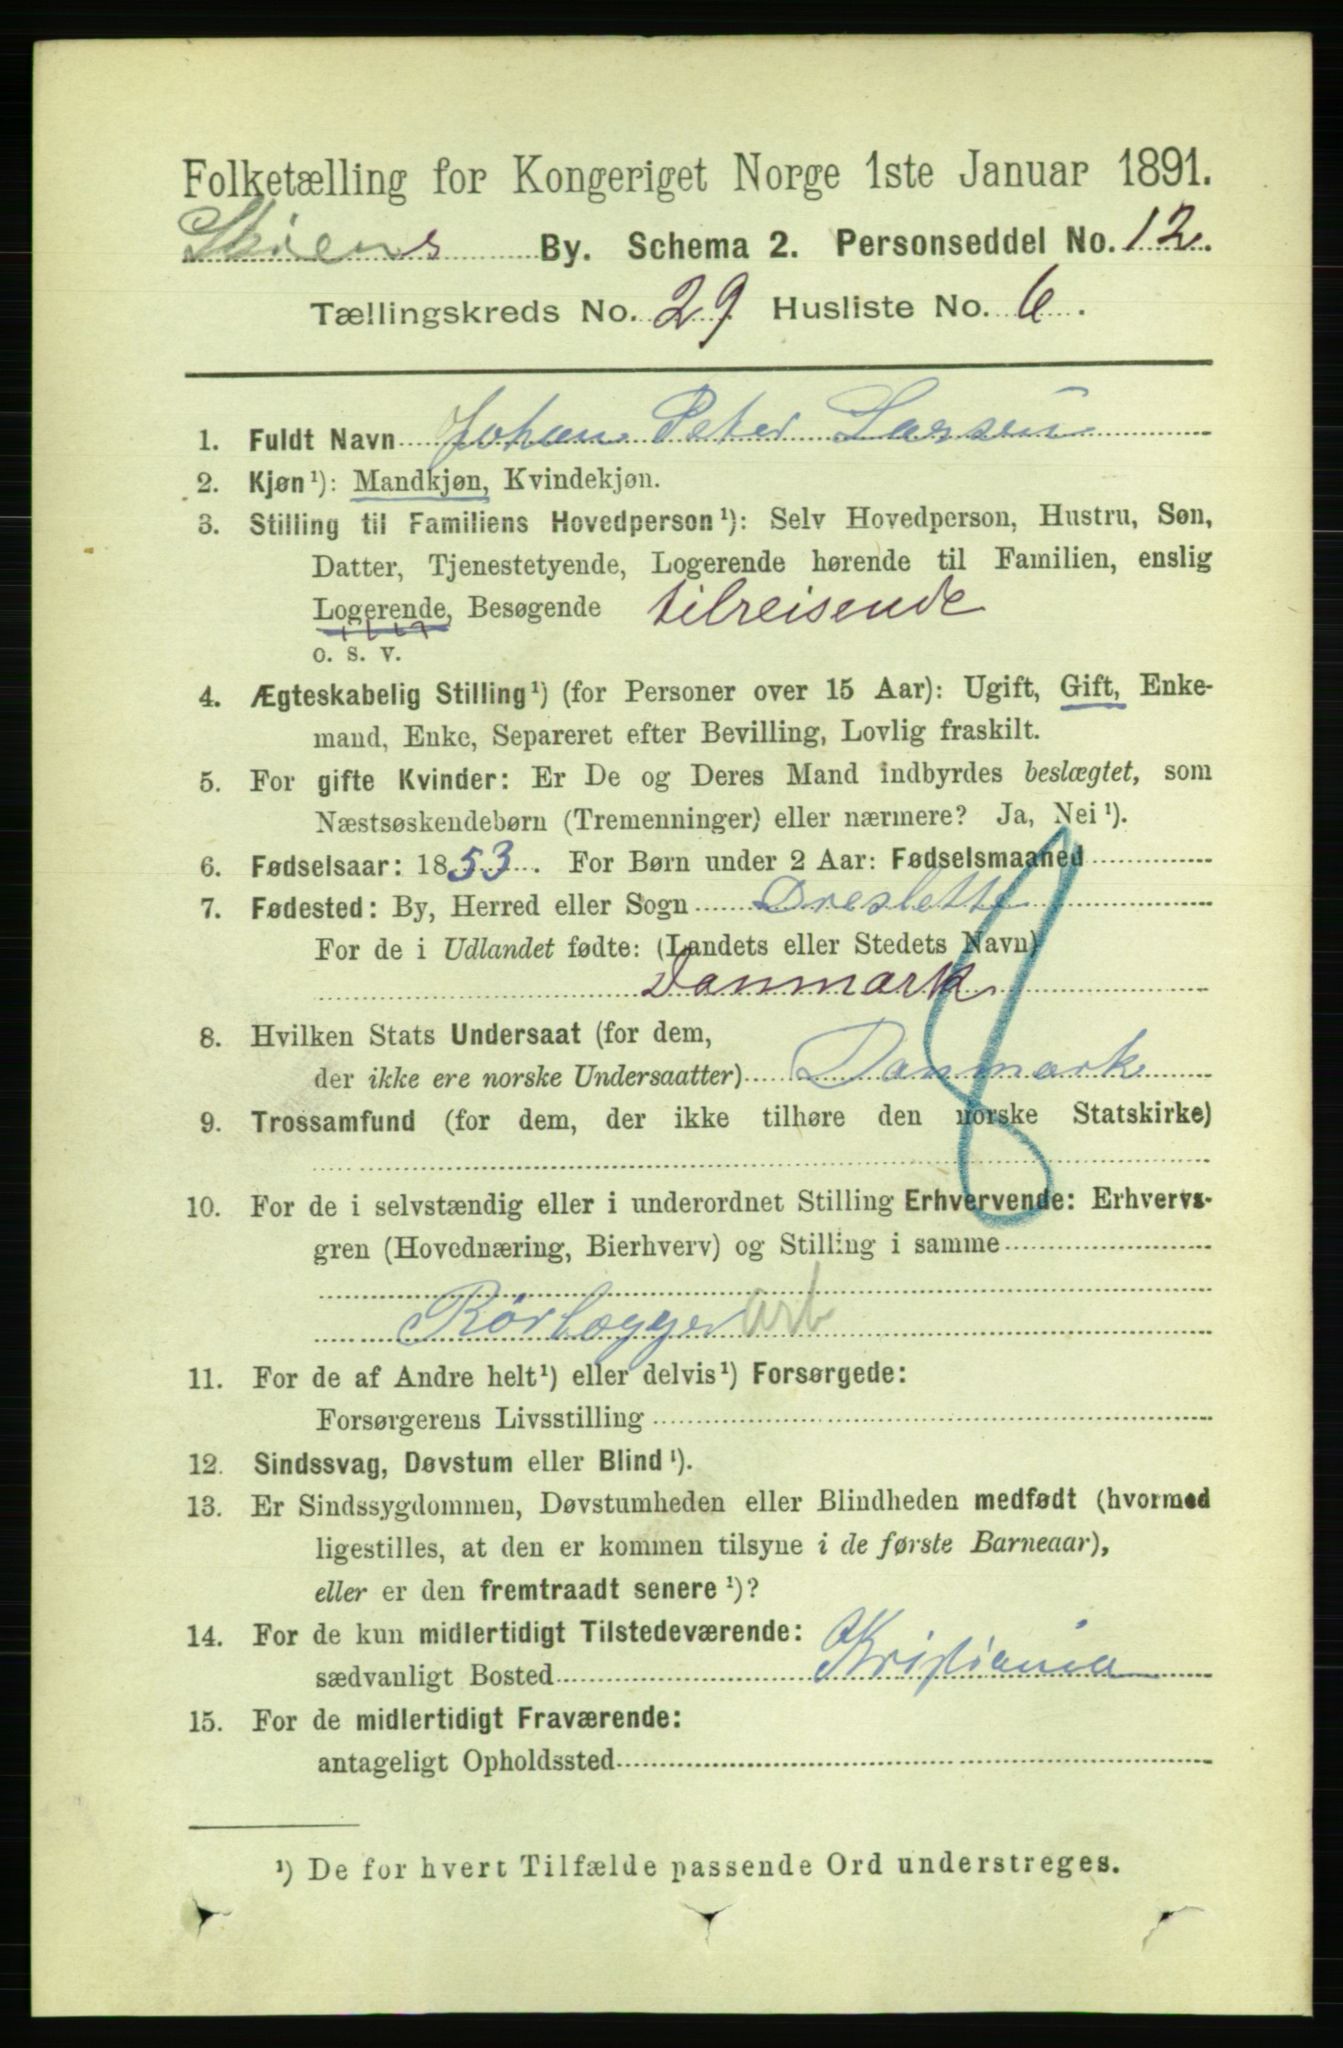 Folketælling for Kongeriget Norge 1ste Januar 1891.
Skiens By. Schema 2. Personseddel No. 12.
Tællingskreds No. 29 Husliste No. 6.
1. Fuldt Navn Johan Peter Larsen
2. Kjøn¹): Mandkjøn, Kvindekjøn.
3. Stilling til Familiens Hovedperson¹): Selv Hovedperson, Hustru, Søn,
Datter, Tjenestetyende, Logerende hørende til Familien, enslig
Logerende, Besøgende tilreisende
o. s. v.
4. Ægteskabelig Stilling¹) (for Personer over 15 Aar): Ugift, Gift, Enke-
mand, Enke, Separeret efter Bevilling, Lovlig fraskilt.
5. For gifte Kvinder: Er De og Deres Mand indbyrdes beslægtet, som
Næstsøskendebørn (Tremenninger) eller nærmere? Ja, Nei¹).
6. Fødselsaar: 1853. For Børn under 2 Aar: Fødselsmaaned
7. Fødested: By, Herred eller Sogn Dreslette
For de i Udlandet fødte: (Landets eller Stedets Navn)
Danmark
8. Hvilken Stats Undersaat (for dem,
der ikke ere norske Undersaatter) Danmark
9. Trossamfund (for dem, der ikke tilhøre den norske Statskirke)
10. For de i selvstændig eller i underordnet Stilling Erhvervende: Erhvervs-
gren (Hovednæring, Bierhverv) og Stilling i samme
Rørlægger arb
11. For de af Andre helt¹) eller delvis¹) Forsørgede:
Forsørgerens Livsstilling
12. Sindssvag, Døvstum eller Blind¹).
13. Er Sindssygdommen, Døvstumheden eller Blindheden medfødt (hvormed
ligestilles, at den er kommen tilsyne i de første Barneaar),
eller er den fremtraadt senere¹)?
14. For de kun midlertidigt Tilstedeværende:
sædvanligt Bosted Kristiania
15. For de midlertidigt Fraværende:
antageligt Opholdssted
¹) De for hvert Tilfælde passende Ord understreges.